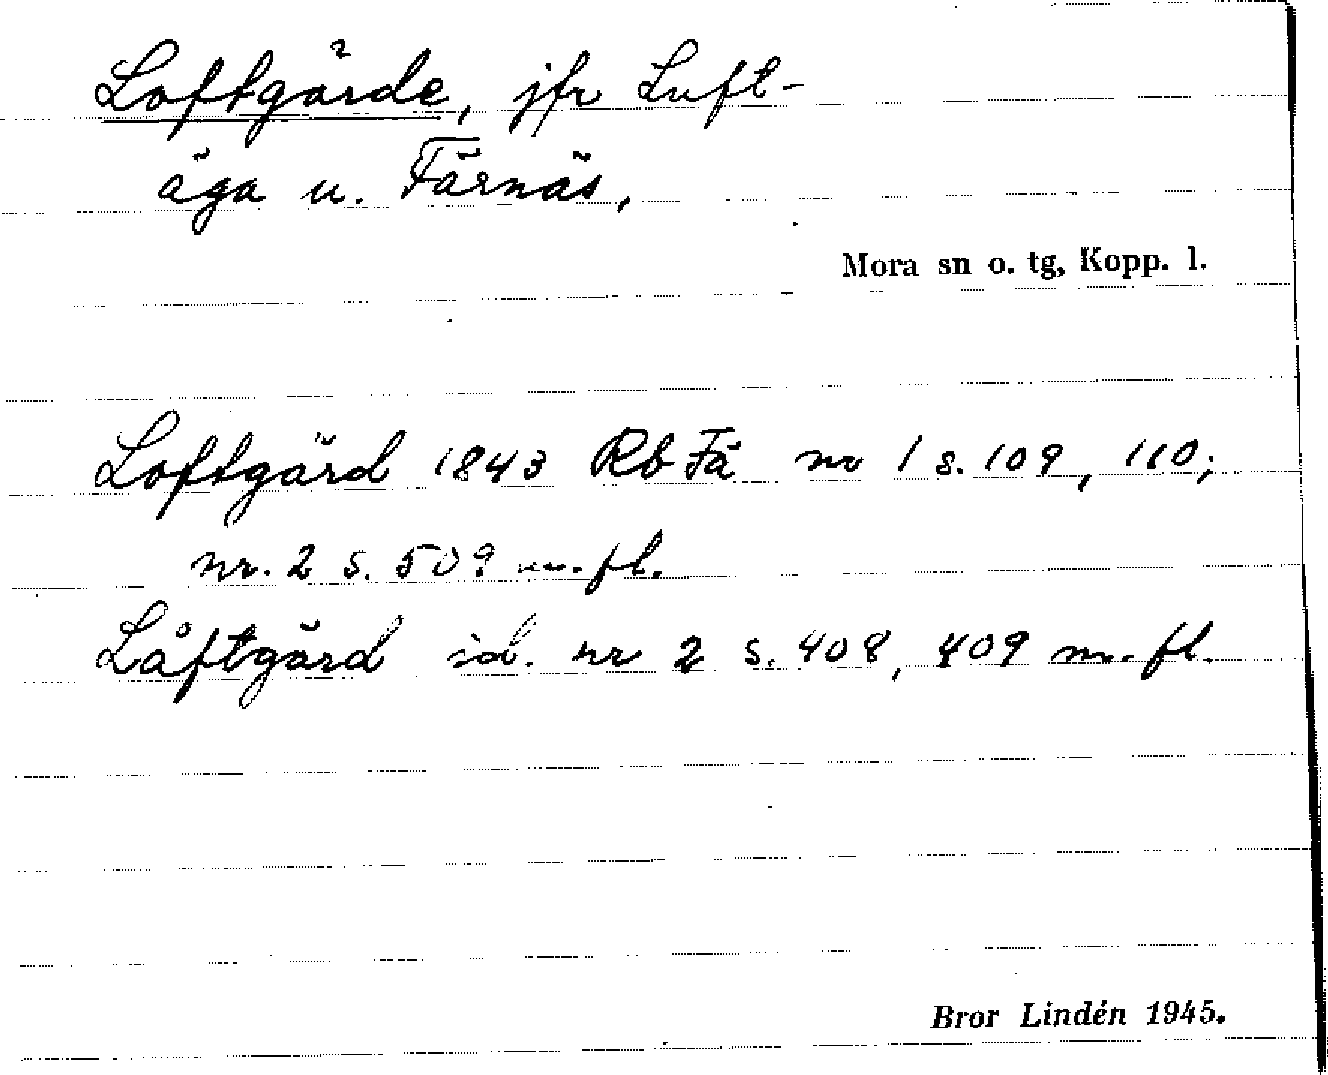 Loftgärde, jfr Luft-
äga u. Färnäs,
Mora sn o. tg, Kopp. l.
Loftgärd 1843 Rb Fä nr 1 s. 109, 110;
nr. 2 s. 509 m. fl.
Låftgärd id. nr 2 s. 408, 409 m. fl.
Bror Lindén 1945.